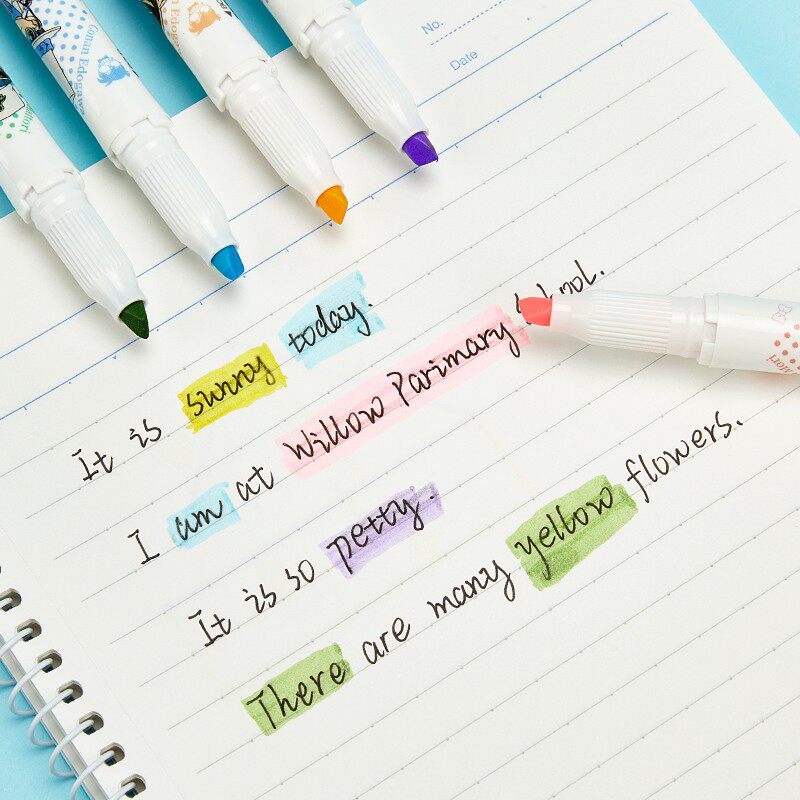 No.
Date
Conan Edogawa
It is sunny today.
I am at Willow Parimary
It is so petty.
There are many yellow flowers.